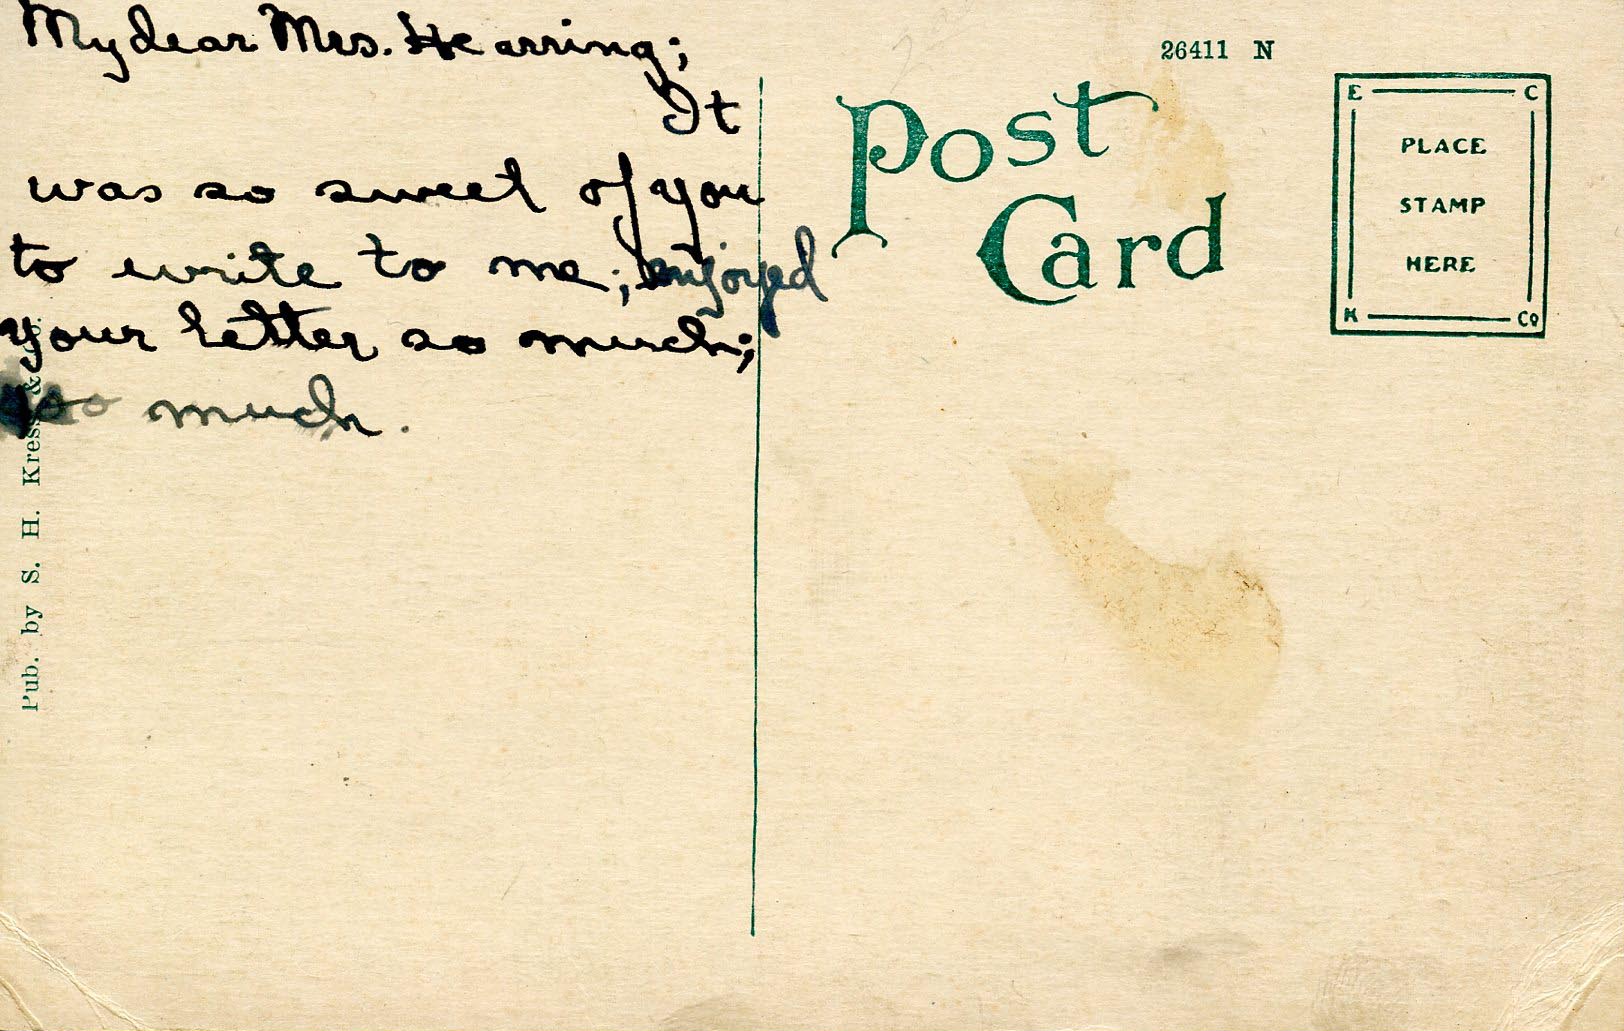 My dear Mrs. Hearring;
It
was so sweet of you
to write to me; enjoyed
your letter so much;
so much.
Pub. by S. H. Kress & Co.
26411 N
Post
Card
E C
PLACE
STAMP
HERE
K Co